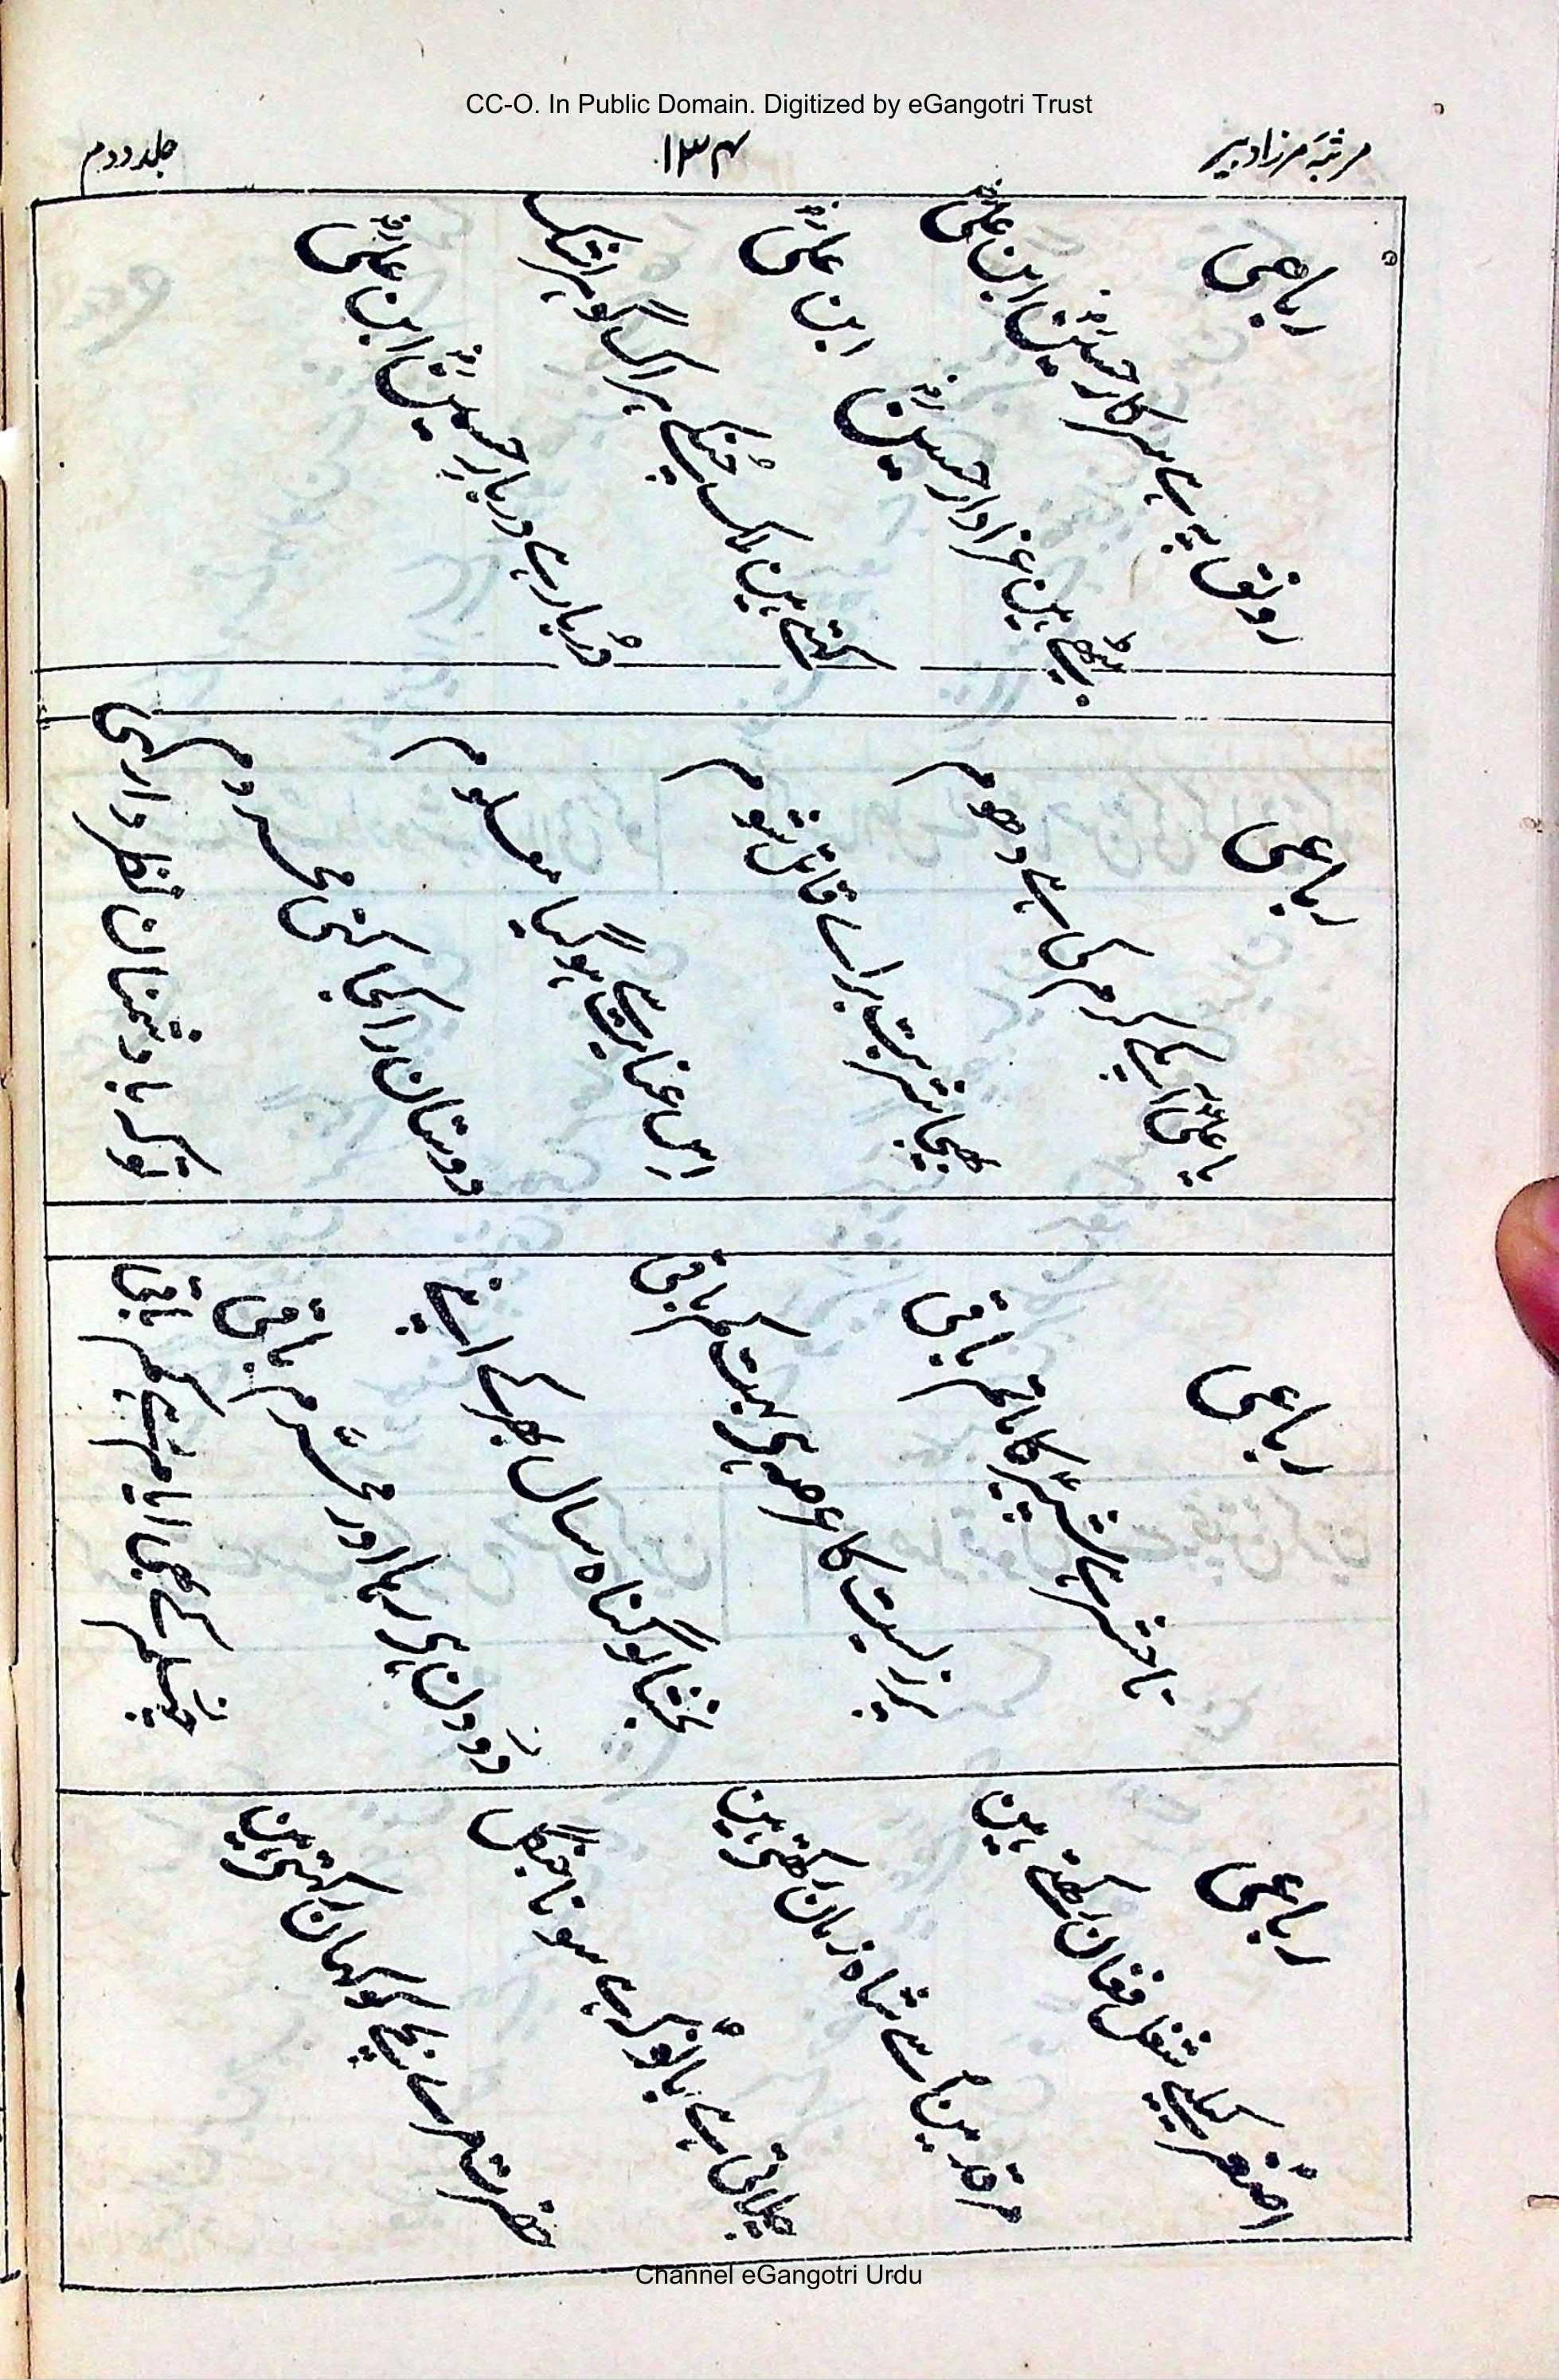 CC-O. In Public Domain. Digitized by eGangotri Trust
مرثیۂ مرزا دبیر
۱۳۴
جلد دوم
رباعی
رونق یہ ہے سرکار حسین ابن علی
بیٹھے ہین عزادار حسین ابن علی
کہتے ہین ملک چنکے ہر اک گوہر اشک
دُربار ہے دربار حسین ابن علی
رباعی
یا علی آپکے کرم کی ہے دھوم
بھیجا شربت براے قاتل شوم
اس عنایت سے ہوگیا معلوم
دوستان را کجا کنی محروم
تو کہ با دشمنان نظر داری
رباعی
تا حشر ہے شبیر کا ماتم باقی
پر زیست کا عرصہ ہی بہت کم باقی
بخشا لو گناہ سال بھر کے اپنے
دو دن ہی رہا اور محرم باقی
چہلم کے بھی ایام رہے کم باقی
رباعی
اصغر کیلیے شغل فغان رکھتے ہین
مرقد مین اُسے شاہ زمان رکھتے ہین
چلاتی ہے بانو کہ ہے سونا جنگل
حضرت مرے بچے کو کہان رکھتے ہین
Channel eGangotri Urdu